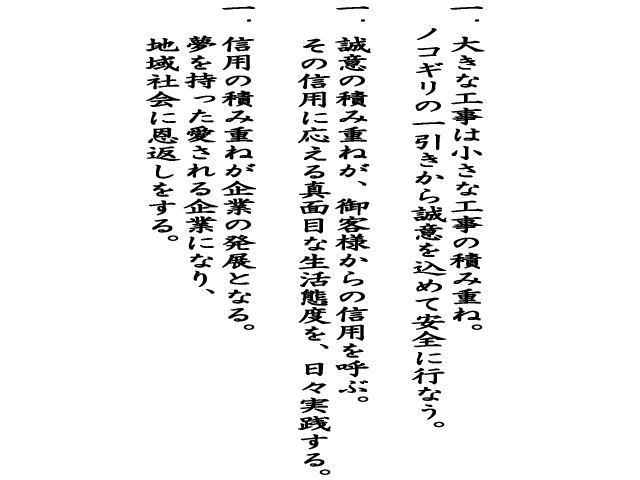 一．大きな工事は小さな工事の積み重ね。
ノコギリの一引きから誠意を込めて安全に行なう。
一．誠意の積み重ねが、御客様からの信用を呼ぶ。
その信用に応える真面目な生活態度を、日々実践する。
一．信用の積み重ねが企業の発展となる。
夢を持った愛される企業になり、
地域社会に恩返しをする。